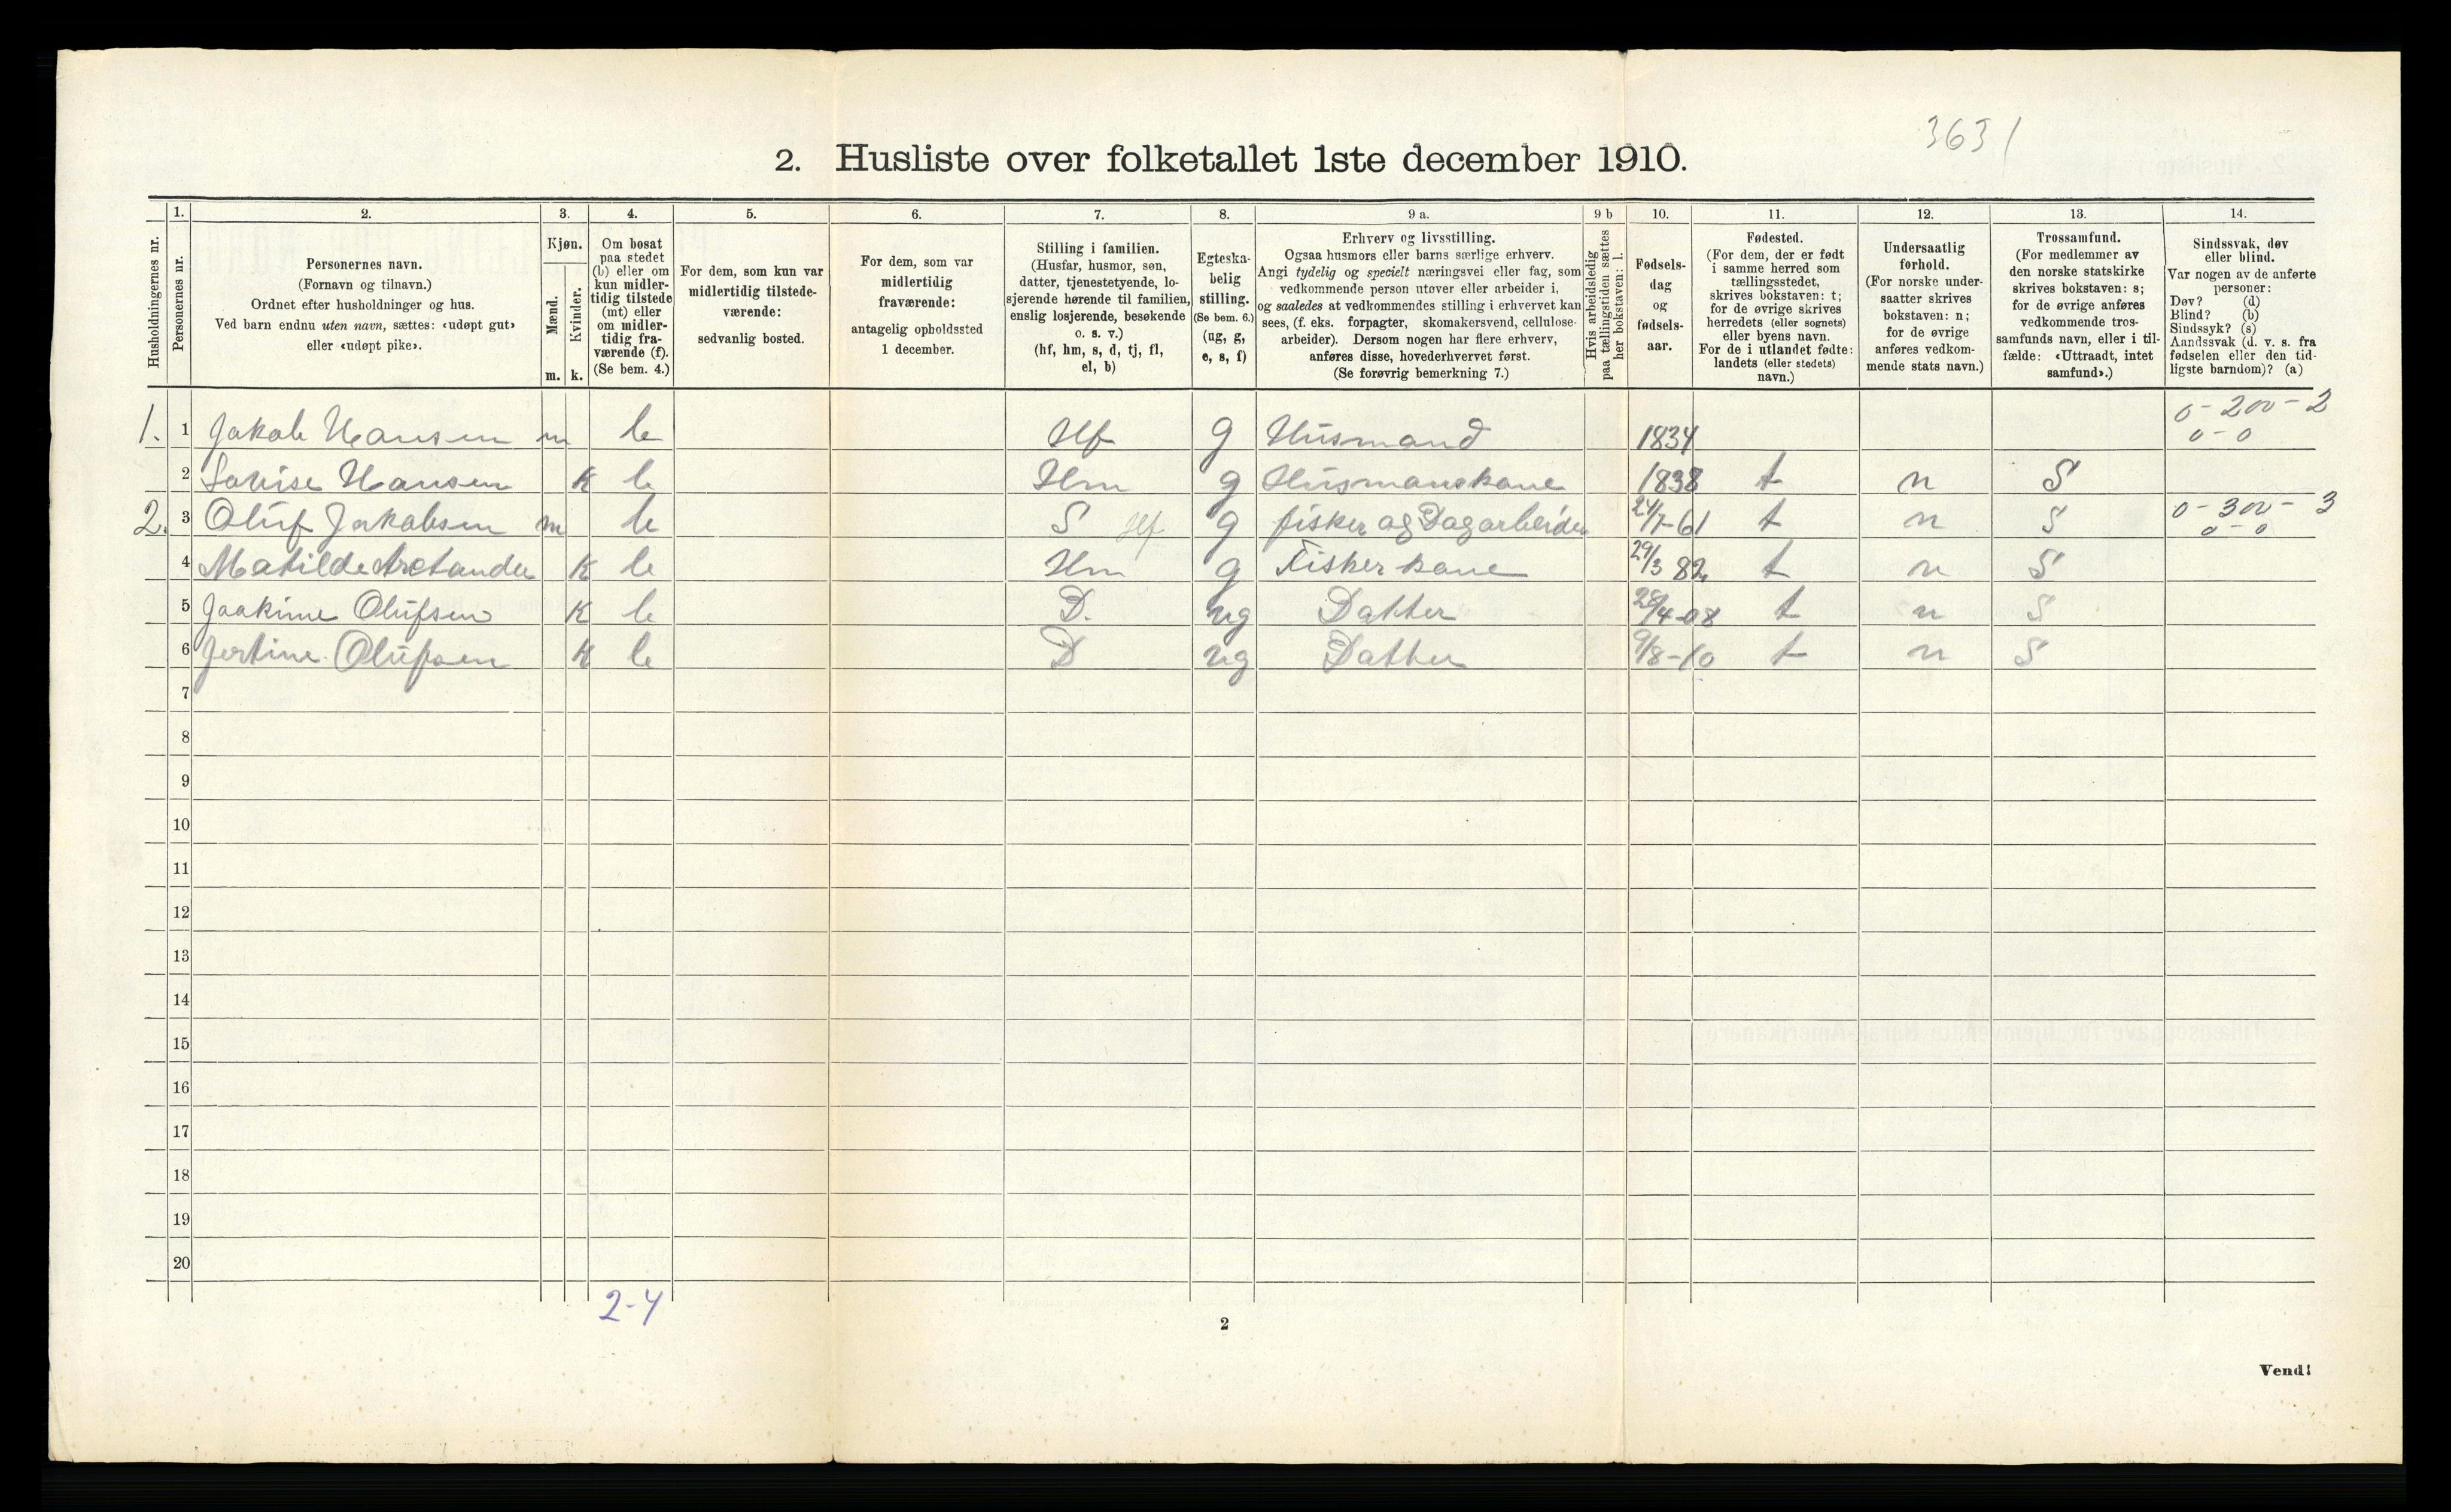 3631
2. Husliste over folketallet 1ste december 1910.
Husholdningernes nr.
1.
Personernes nr.
2.
Personernes navn.
(Fornavn og tilnavn.)
Ordnet efter husholdninger og hus.
Ved barn endnu uten navn, sættes: «udøpt gut»
eller «udøpt pike».
3.
Kjøn.
Mænd.
Kvinder.
m. k.
4.
Om bosat
paa stedet
(b) eller om
kun midler-
tidig tilstede
(mt) eller
om midler-
tidig fra-
værende (f).
(Se bem. 4.)
5.
For dem, som kun var
midlertidig tilstede-
værende:
sedvanlig bosted.
6.
For dem, som var
midlertidig
fraværende:
antagelig opholdssted
1 december.
7.
Stilling i familien.
(Husfar, husmor, søn,
datter, tjenestetyende, lo-
sjerende hørende til familien,
enslig losjerende, besøkende
o. s. v.)
(hf, hm, s, d, tj, fl,
el, b)
8.
Egteska-
belig
stilling.
(Se bem. 6.)
(ug, g,
e, s, f)
9 a.
Erhverv og livsstilling.
Ogsaa husmors eller barns særlige erhverv.
Angi tydelig og specielt næringsvei eller fag, som
vedkommende person utøver eller arbeider i,
og saaledes at vedkommendes stilling i erhvervet kan
sees, (f. eks. forpagter, skomakersvend, cellulose-
arbeider). Dersom nogen har flere erhverv,
anføres disse, hovederhvervet først.
(Se forøvrig bemerkning 7.)
9 b
Hvis arbeidsledig
paa tællingstiden sættes
her bokstaven: l.
10.
Fødsels-
dag
og
fødsels-
aar.
11.
Fødested.
(For dem, der er født
i samme herred som
tællingsstedet,
skrives bokstaven: t;
for de øvrige skrives
herredets (eller sognets)
eller byens navn.
For de i utlandet fødte:
landets (eller stedets)
navn.)
12.
Undersaatlig
forhold.
(For norske under-
saatter skrives
bokstaven: n;
for de øvrige
anføres vedkom-
mende stats navn.)
13.
Trossamfund.
(For medlemmer av
den norske statskirke
skrives bokstaven: s;
for de øvrige anføres
vedkommende tros-
samfunds navn, eller i til-
fælde: «Uttraadt, intet
samfund».)
14.
Sindssvak, døv
eller blind.
Var nogen av de anførte
personer:
Døv? (d)
Blind? (b)
Sindssyk? (s)
Aandssvak (d. v. s. fra
fødselen eller den tid-
ligste barndom)? (a)
1. 1 Jakob Hansen m b Hf g Husmand 1834 0-200-2
0-0
2 Lovise Hansen K b Hm g Husmanskone 1838 t n S
2. 3 Oluf Jakobsen m b S Hf g fisker og Dagarbeider 24/7-61 t n S 0-300-3
0-0
4 Matilde K b Hm g Fisker kone 29/3 82 t n S
5 Joakime Olufsen K b D. ug Datter 28/4-08 t n S
6 Jertine Olufsen K b D ug Datter 9/8-10 t n S
7
8
9
10
11
12
13
14
15
16
17
18
19
20
2-4
2
Vend!